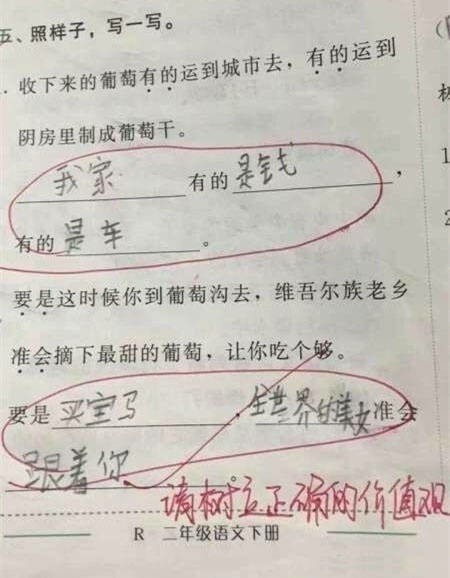 五、照样子，写一写。
. 收下来的葡萄有的运到城市去，有的运到
阴房里制成葡萄干。
我家 有的 是钱，
有的 是车 。
要是这时候你到葡萄沟去，维吾尔族老乡
准会摘下最甜的葡萄，让你吃个够。
要是 买宝马 ，全世界的美女准会
跟着你 。
请树立正确的价值观
R 二年级语文下册